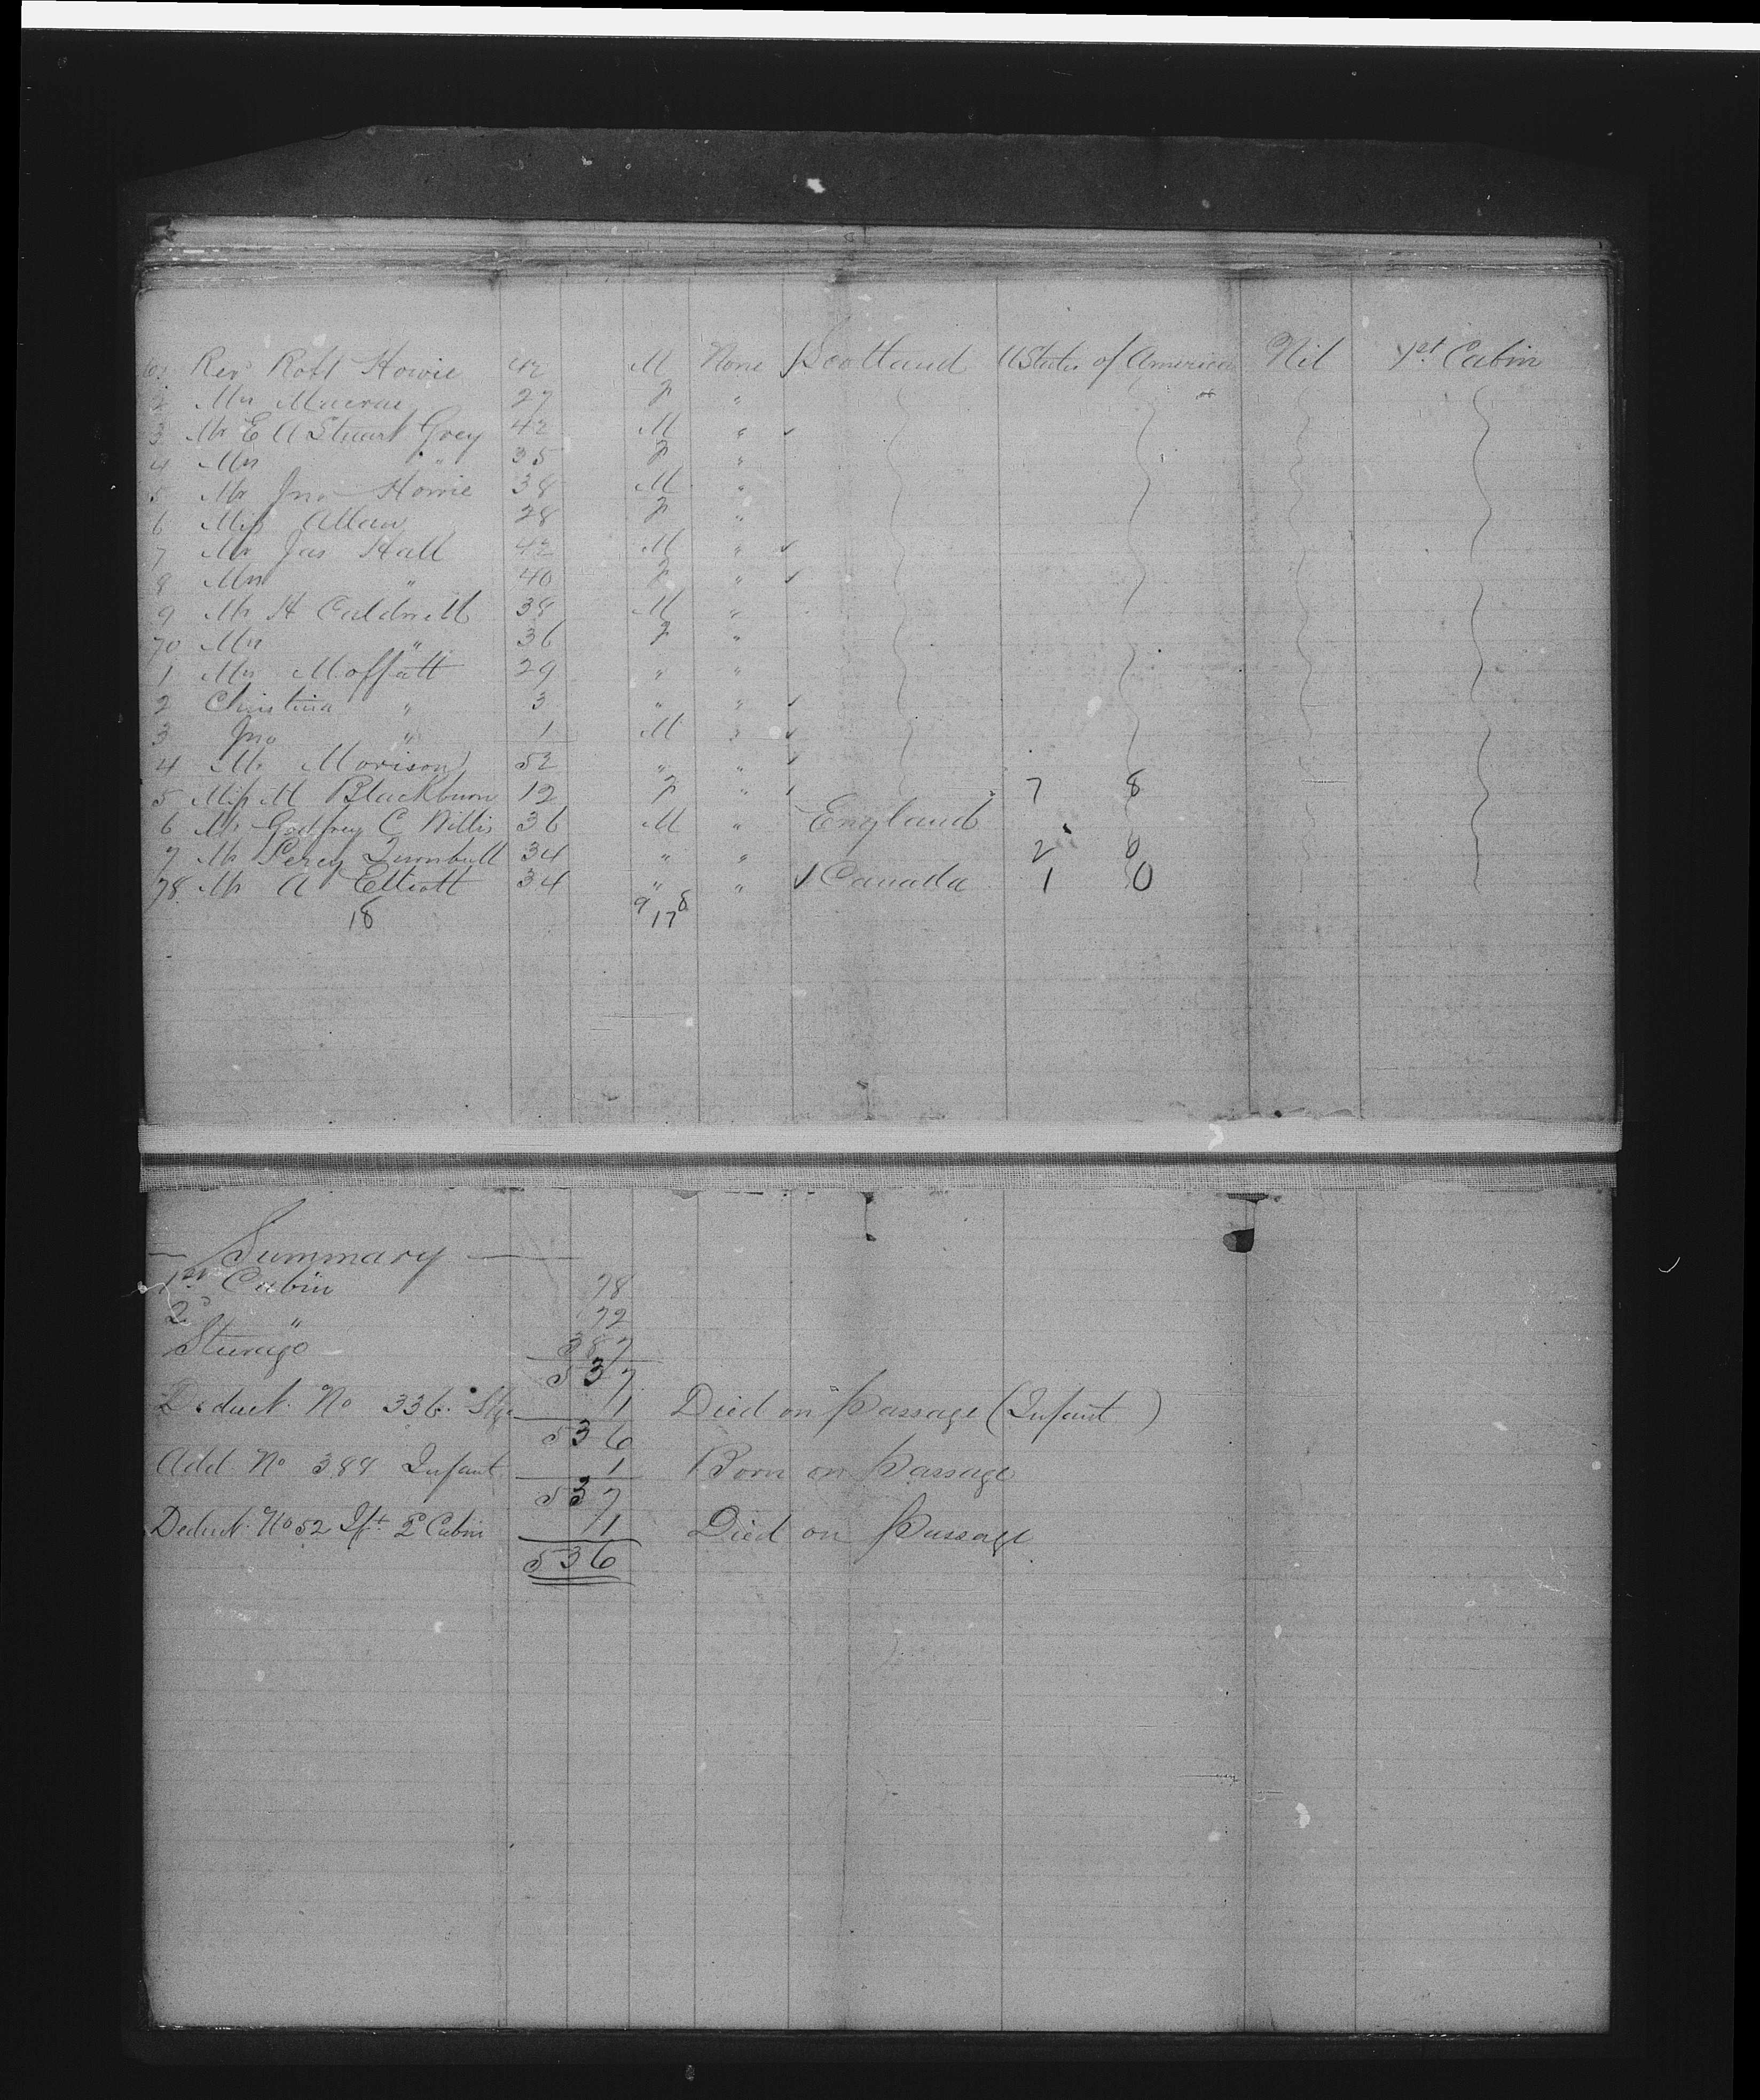 61 Revd Robt Howie 42 M None Scotland U States of America Nil 1st Cabin
2 Mrs Macrae 27 F "
3 Mr E A Stuart Grey 42 M " ✓
4 Mrs " 35 F "
5 Mr Jno Howie 38 M "
6 Miss Allan 28 F "
7 Mr Jas Hall 42 M " ✓
8 Mrs " 40 F " ✓
9 Mr H Caldwell 38 M "
70 Mrs " 36 F "
1 Mrs Moffatt 29 " "
2 Christina " 3 " " ✓
3 Jno " 1 M " ✓
4 Mr Morison 52 " " ✓
5 Miss M Blackburn 12 F " ✓ 7 8
6 Mr Godfrey C Willis 36 M " England
7 Mr Percy Turnbull 34 " " 2 0
78 Mr A Elliott 34 " " ✓ Canada 1 0
18 9 8
17
— Summary —
1st Cabin 78
2d " 72
Steerage 387
537
Deduct No 336. Stge 1 Died on passage (Infant)
536
Add No 388 Infant 1 Born on passage
537
Deduct No 52 Ift 2d Cabin 1 Died on passage
536